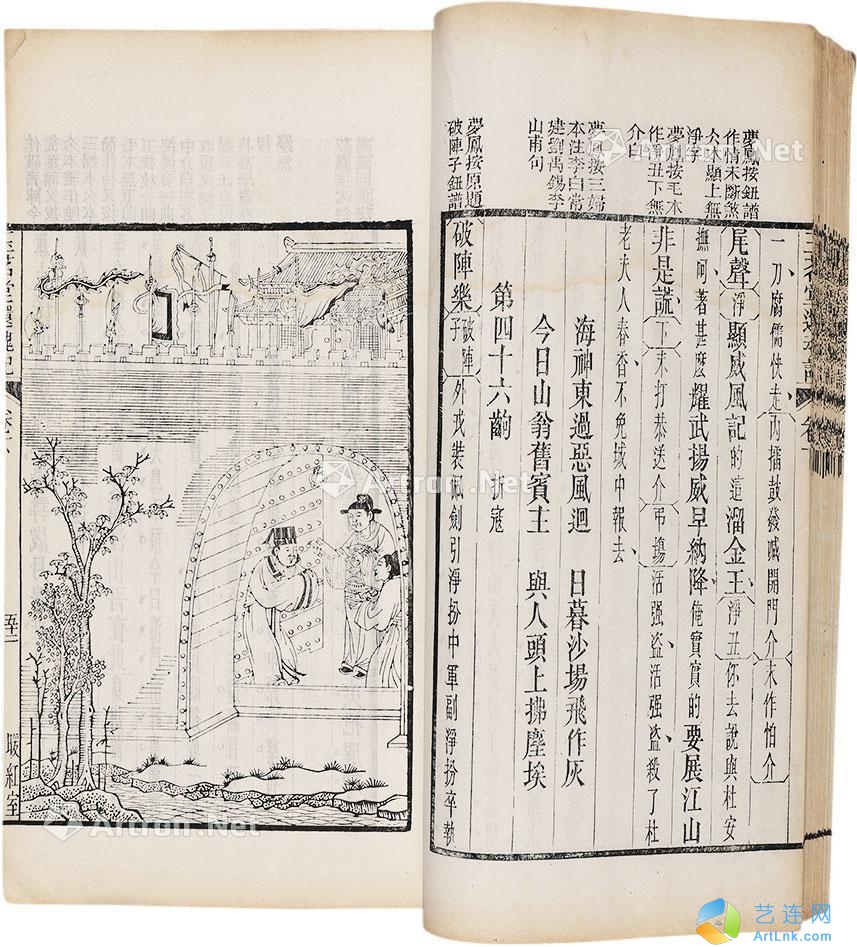 夢鳳按鈕譜
作情未斷煞
夊本顯上無
淨字
夢鳳按毛本
作淨丑下無
介白
夢鳳按三婦
本注李白常
建劉禹錫李
山甫句
夢鳳按原題
破陣子鈕譜
一刀腐儒快走內擂鼓發喊開門介末作怕介
尾聲淨顯威風記的這溜金王淨丑伱去說與杜安
撫呵著甚麽耀武揚威早納降俺實實的要展江山
非是謊下末打恭送介弔塲活强盜活强盜殺了杜
老夫人春香不免城中報去
海神東過惡風迴　日暮沙場飛作灰
今日山翁舊賓主　與人頭上拂塵埃
第四十六齣　折寇
破陣樂破陣子外戎裝佩劍引淨扮中軍副淨扮卒執
玉茗堂還魂記
暖紅室
Artron.Net
Artron.Net
Artron.Net
Artron.Net
艺连网
ArtLnk.com